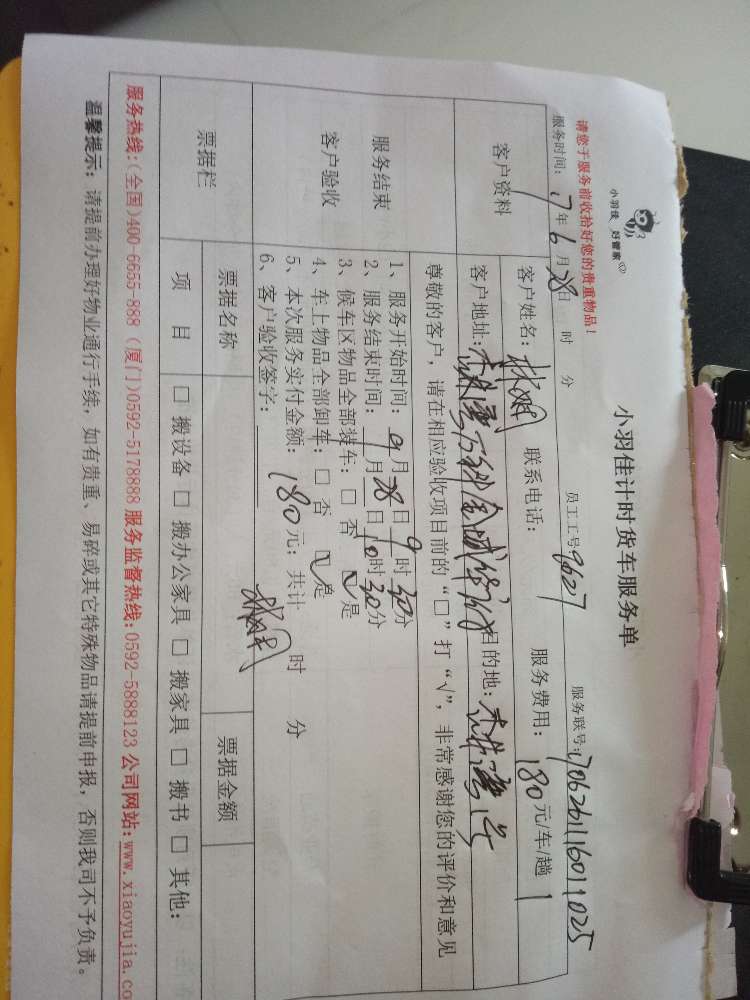 小羽佳 好管家
请您于服务前收拾好您的贵重物品!
小羽佳计时货车服务单
服务时间: 17年6月28日 时 分 员工工号 9627 服务联号: 170626111601 1025
客户资料
客户姓名: 联系电话: 服务费用: 180元/车/趟 1
客户地址: 目的地:
尊敬的客户, 请在相应验收项目前的“□”打“√”, 非常感谢您的评价和意见
服务结束
客户验收
1、服务开始时间: 月28日9时30分
2、服务结束时间: 月28日10时30分
3、候车区物品全部装车: □ 否 ☑是
4、车上物品全部卸车: □ 否 ☑是
5、本次服务实付金额: 180元; 共计 时 分
6、客户验收签字:
票据栏
票据名称 票据金额
项 目 □ 搬设备 □ 搬办公家具 □ 搬家具 □ 搬书 □ 其他:
服务热线:(全国)400-6655-888 (厦门)0592-5178888 服务监督热线:0592-5888123 公司网站:www.xiaoyujia.co
温馨提示: 请提前办理好物业通行手续, 如有贵重、易碎或其它特殊物品请提前申报, 否则我司不予负责。